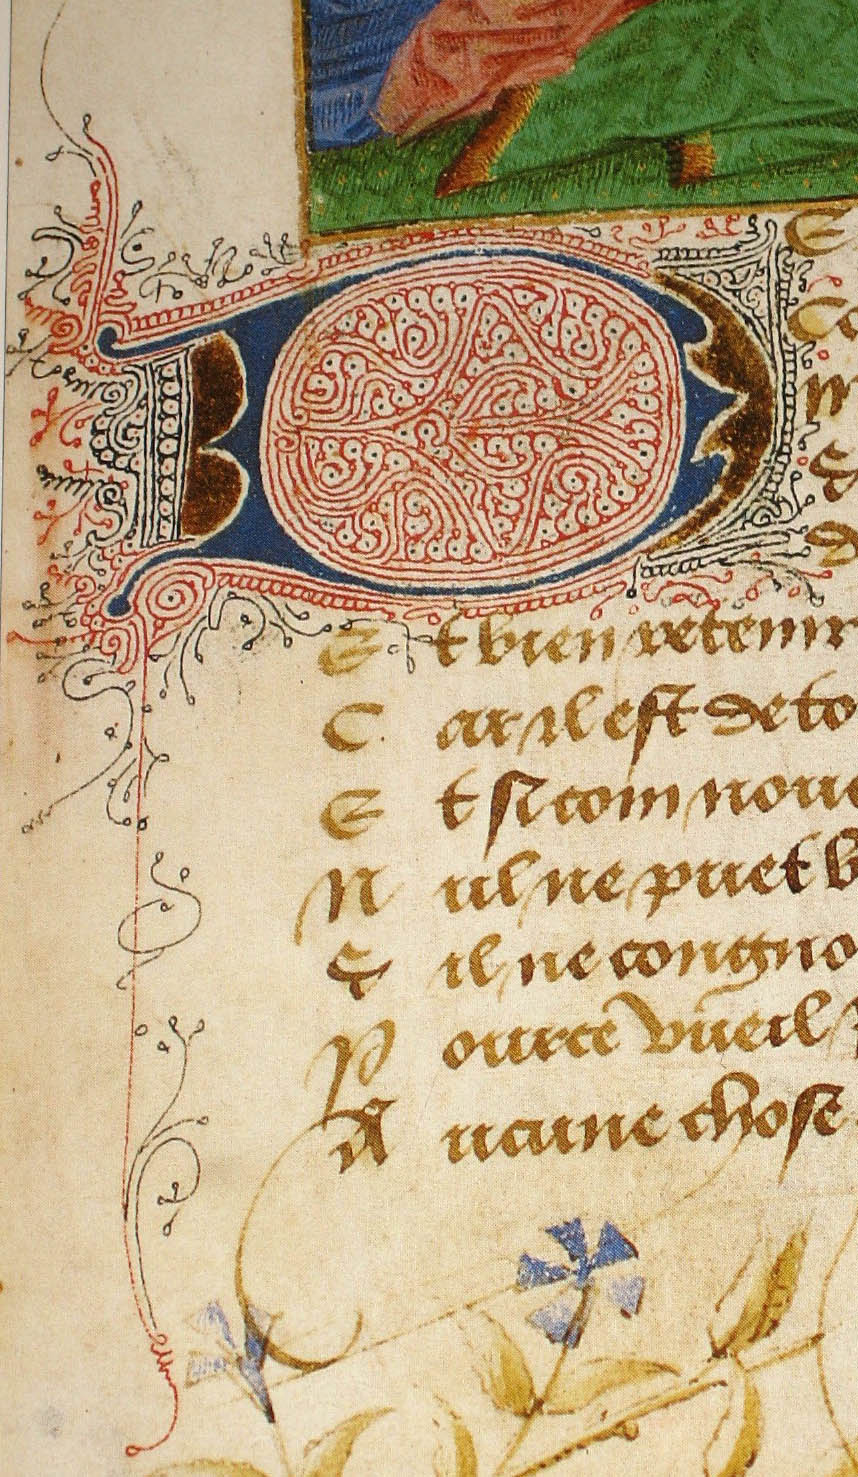 D
E
Co
m
S
d
E t bien retenir
C ar il est de to
E t si com nou
N ul ne puet b
S il ne congno
P ource vueil
A ucune chose